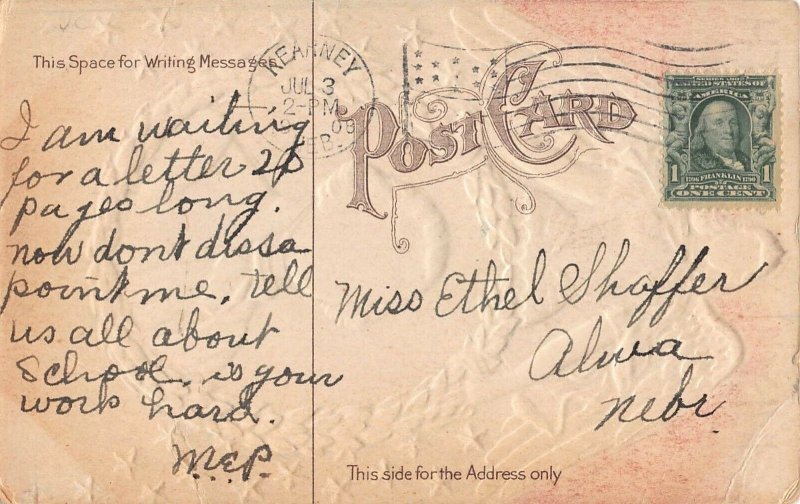 This Space for Writing Messages
KEARNEY
JUL 3
2-PM
08
NEBR.
POST CARD
SERIES 1902
UNITED STATES OF
AMERICA
1706 FRANKLIN 1790
1 POSTAGE 1
ONE CENT
I am waiting
for a letter 20
pages long.
now dont dissa
point me. tell
us all about
School. is your
work hard.
M.E.P.
Miss Ethel Shaffer
Alma
Nebr
This side for the Address only